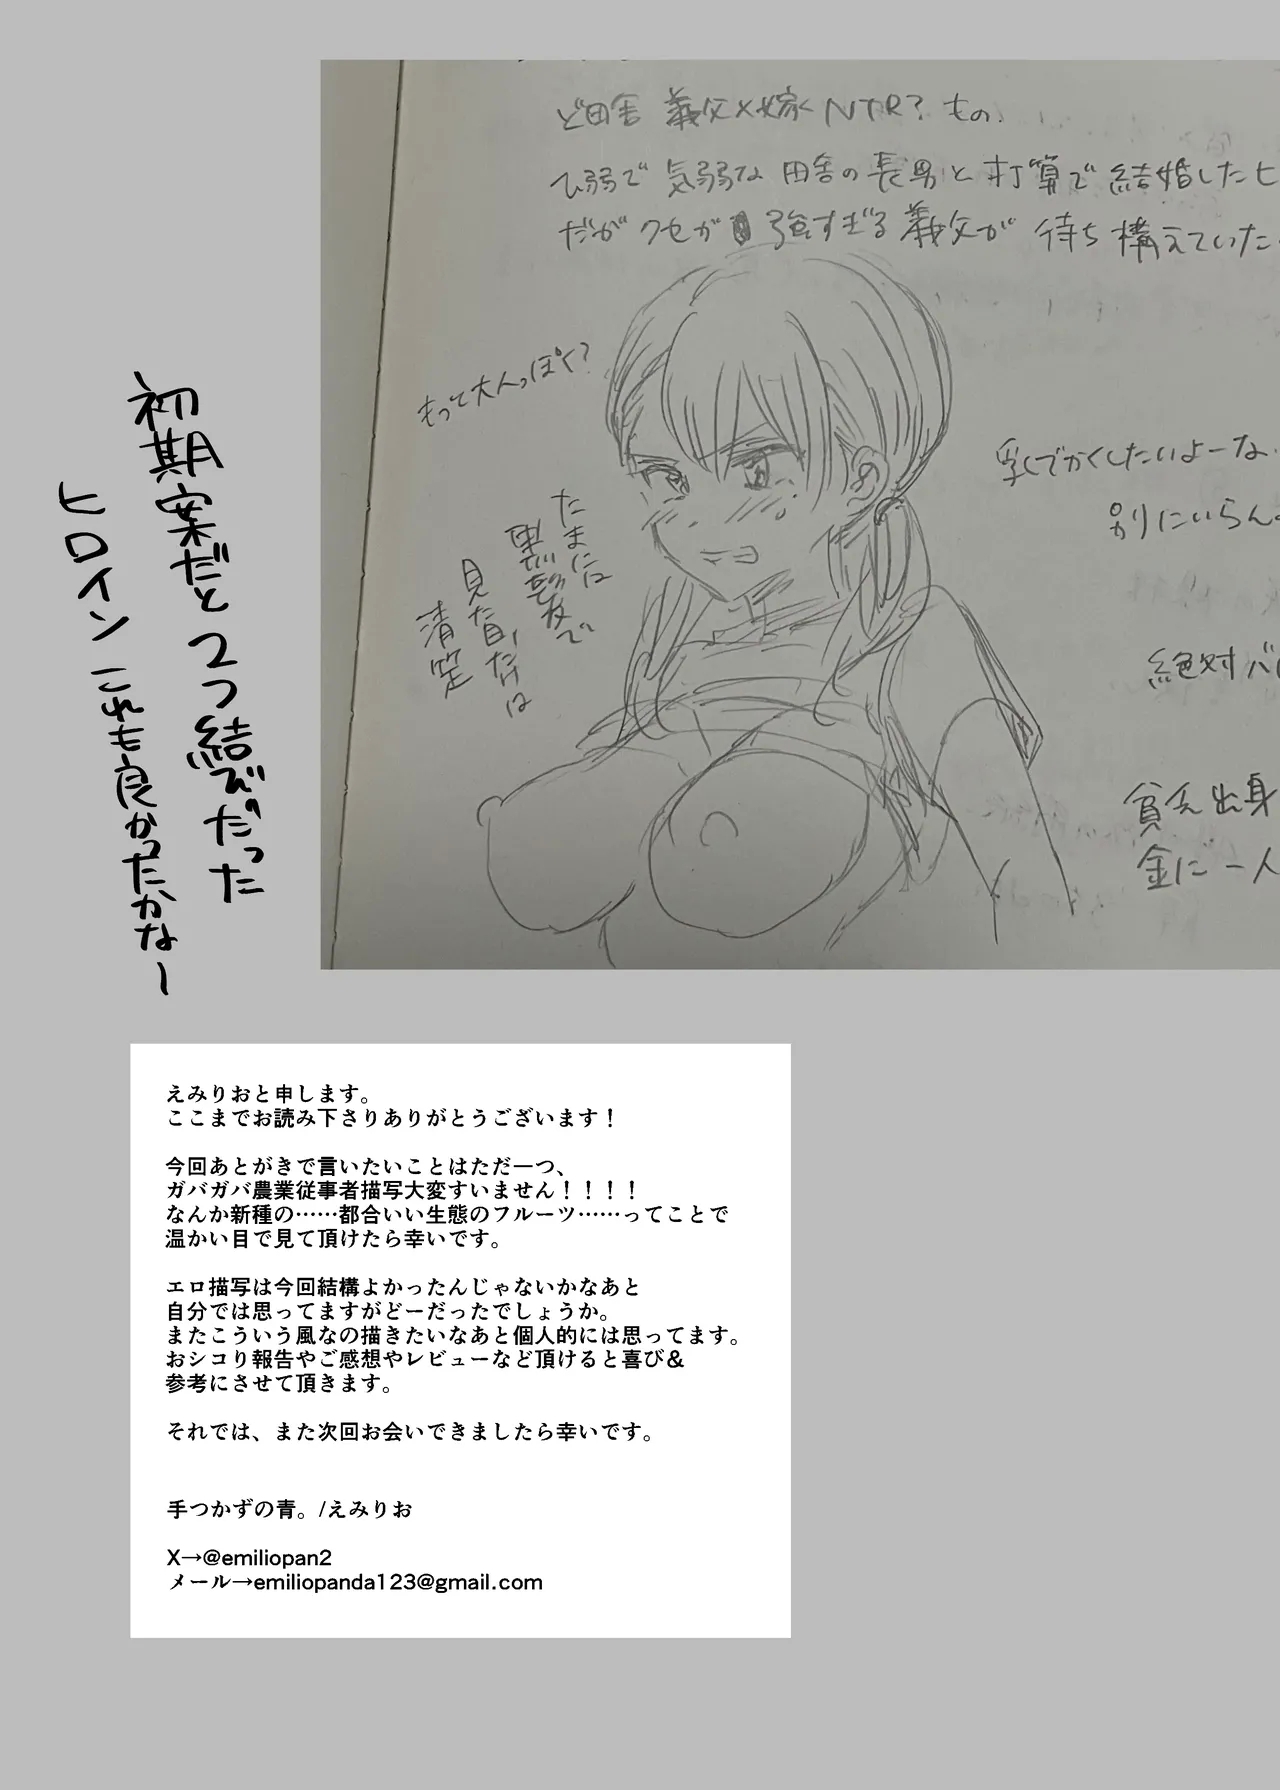 ど田舎 義父×嫁 NTR? もの.
ひ弱で 気弱な 田舎の長男と打算で結婚したヒ
だがクセが 強すぎる義父が 待ち構えていた.
もって大人っぽく?
乳でかくしたいよーな.
別にいらん
たまには
黒髪で
見た目だけは
清楚
絶対バ
貧乏出身
金に一人
初期案だと2つ結びだった
ヒロイン これも良かったかなー
えみりおと申します。
ここまでお読み下さりありがとうございます!
今回あとがきで言いたいことはただ一つ、
ガバガバ農業従事者描写大変すいません!!!!
なんか新種の……都合いい生態のフルーツ……ってことで
温かい目で見て頂けたら幸いです。
エロ描写は今回結構よかったんじゃないかなあと
自分では思ってますがどーだったでしょうか。
またこういう風なの描きたいなあと個人的には思ってます。
おシコり報告やご感想やレビューなど頂けると喜び&
参考にさせて頂きます。
それでは、また次回お会いできましたら幸いです。
手つかずの青。/えみりお
X→@emiliopan2
メール→emiliopanda123@gmail.com